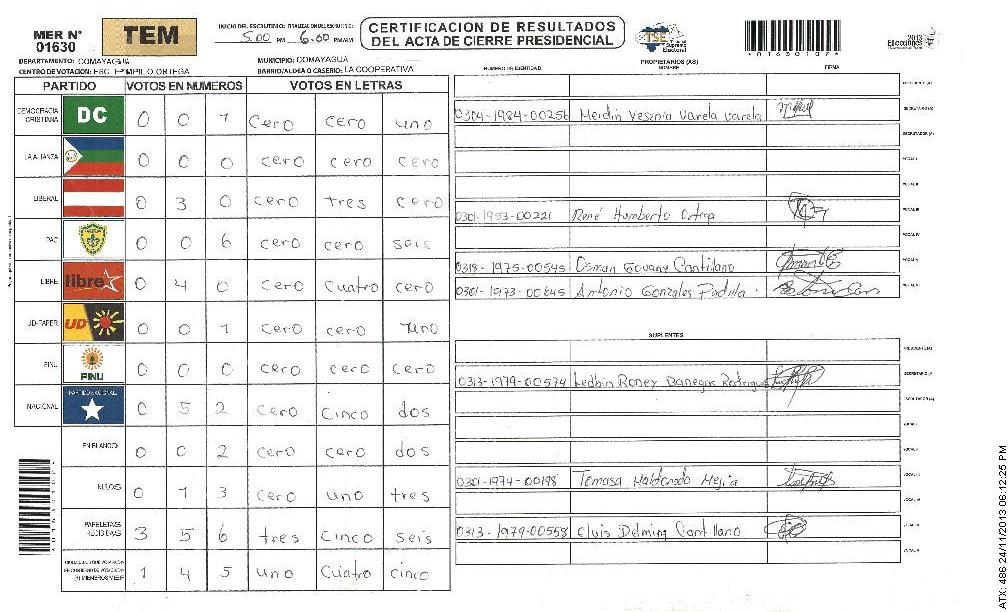 MER N° 01630
TEM
INICIO DEL ESCRUTINIO: FINALIZACION DEL ESCRUTINIO:
5:00 PM 6:00 PM/AM
CERTIFICACION DE RESULTADOS
DEL ACTA DE CIERRE PRESIDENCIAL
TSE Supremo Electoral
01630107
2013
Elecciones
DEPARTAMENTO: COMAYAGUA
MUNICIPIO: COMAYAGUA
CENTRO DE VOTACION: ESC. ORTEGA
BARRIO/ALDEA O CASERIO: LA COOPERATIVA
PARTIDO VOTOS EN NUMEROS VOTOS EN LETRAS
DEMOCRACIA CRISTIANA DC 0 0 1 Cero cero uno
LA ALIANZA 0 0 0 cero cero cero
LIBERAL 0 3 0 cero tres cero
PAC 0 0 6 cero cero seis
LIBRE libre 0 4 0 cero Cuatro cero
UD-FAPER UD 0 0 1 cero cero uno
PINU PINU 0 0 0 cero cero cero
NACIONAL PARTIDO NACIONAL 0 5 2 cero Cinco dos
EN BLANCO 0 0 2 cero cero dos
NULOS 0 1 3 cero uno tres
PAPELETAS RECIBIDAS 3 5 6 tres Cinco seis
1 4 5 uno Cuatro cinco
NUMERO DE IDENTIDAD
PROPIETARIOS (AS)
NOMBRE
FIRMA
0304-1984-00256 Meidin Yesenia Varela Varela
0301-1953-00221 René Humberto Ortega
0318-1975-00545 Osman Govany Cantillano
0301-1973-00645 Antonio Gonzales Padilla
SUPLENTES
0313-1979-00574 Ledbin Roney Banegas Rodriguez
0301-1974-00198 Tomasa Maldonado Mejia
0313-1979-00558 Elvis Delming Cantillano
ATX: 486 24/11/2013 06:12:25 PM